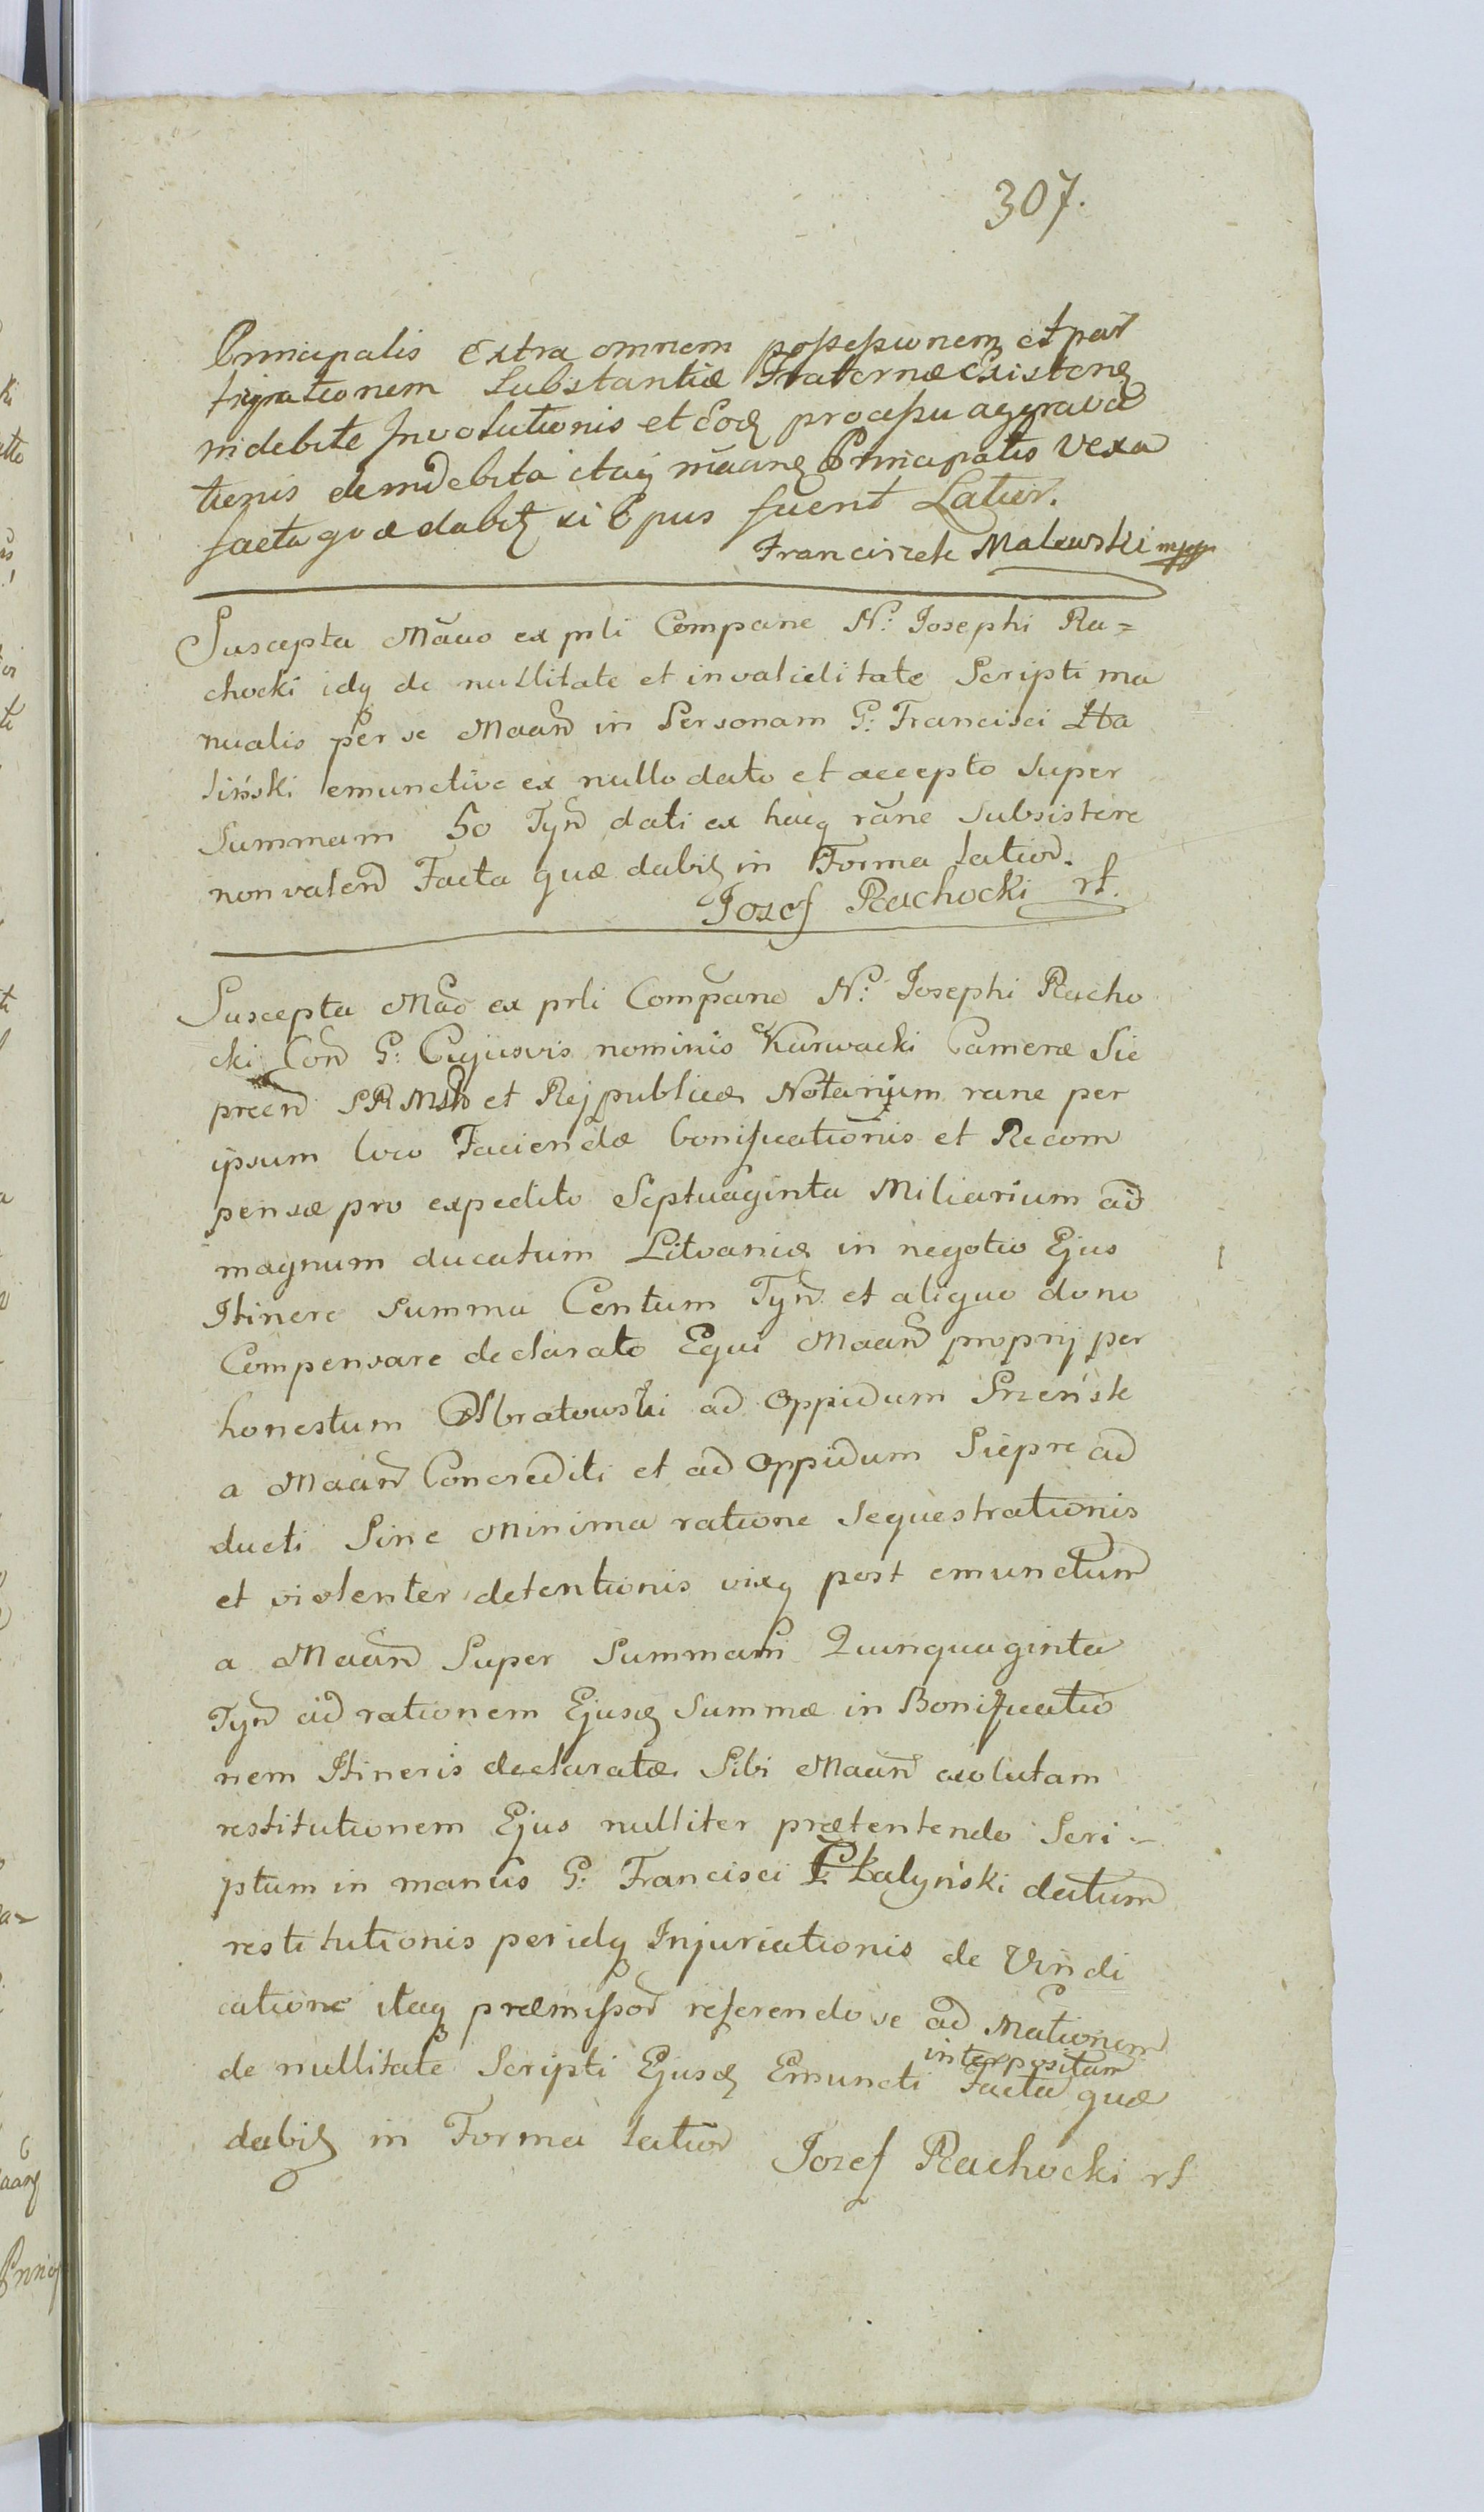 307.
Principalis extra omnem possessionem et par
ticipationem Substantiæ Fraternæ Existenȝ
indebite Involutionis et Eodȝ processu aggrava
tionis de indebita itaq mãanȝ Principalis vexa
facta quæ dabitȝ si Opus fuerit Latior.
Franciszek Malewski mpp
Suscepta Mãao ex prli Compane N: Josephi Ra=
chocki idq de nullitate et invaliditate Scripti ma
nualis per se Maañ in Personam G: Francisci
liński emunctive ex nullo dato et accepto Super
Summam 50 Tyñ dati ex hacq rãne Subsistere
non valenđ Facta quæ dabitȝ in Forma latiori.
Jozef Rachocki rf.
Suscepta Mãao ex prli Compane N: Josephi Racho
cki Coñ G: Cujusvis nominis Karwacki Cameræ Sie
preeñ SRM et Rejpublicæ Notarium rane per
ipsum loco Faciendæ bonificationis et Recom
pensæ pro expedito Septuaginta Miliarium ad
magnum ducatum Litvaniæ in negotio Ejus
Itinere Summa Centum Tyñ et aliquo dono
Compensare declarato Equi Maañ proprij per
honestum Obratowski ad Oppidum Srzeńsk
a Maañ Concrediti et ad Oppidum Siepre ad
ducti Sine Minima ratione Sequestrationis
et violenter detentionis vixq post emunctum
a Maañ Super Summam Quinquaginta
Tyñ ad rationem Ejusdȝ Summæ in Bonificatio
nem Itineris declaratæ Sibi Maañ exolutam
restitutionem Ejus nulliter prætentendo Scri=
ptum in manus G: Francisci datum
restitutionis peridq Injuriationis de Vindi
catione itaq præmissor referendo se ad Mationem
interpositam
de nullitate Scripti Ejusdȝ Emuncti Facta quæ
dabitȝ in Forma latior Jozef Rachocki rf